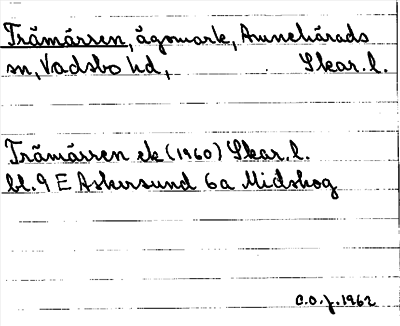 Trämärren, ägomark, Amnehärads
sn, Vadsbo hd, Skar. l.
Trämärren ek (1960) Skar. l.
bl. 9 E Askersund 6a Midskog
C.O.J. 1962